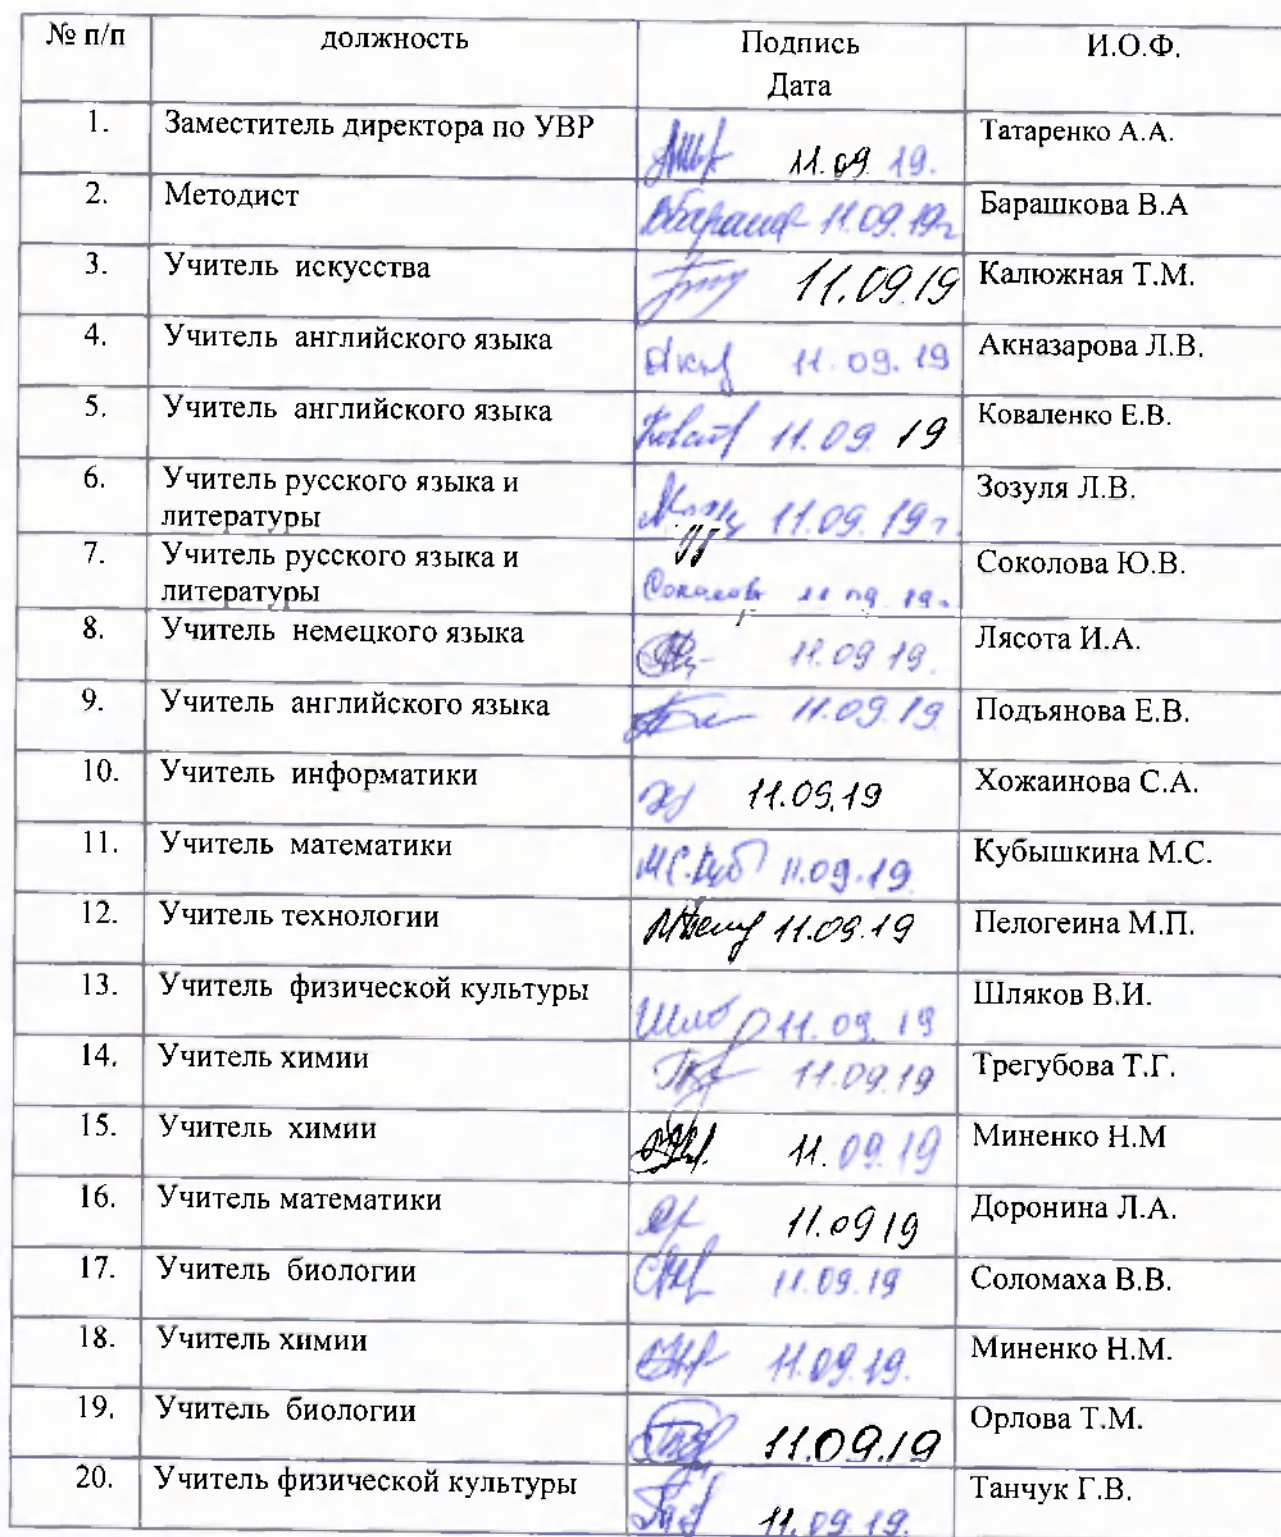 № п/п должность Подпись И.О.Ф.
Дата
1. Заместитель директора по УВР 11.09 19. Татаренко А.А.
2. Методист 11.09.19г Барашкова В.А
3. Учитель искусства 11.09.19 Калюжная Т.М.
4. Учитель английского языка 11.09.19 Акназарова Л.В.
5. Учитель английского языка 11.09. 19 Коваленко Е.В.
6. Учитель русского языка и 11.09.19г. Зозуля Л.В.
литературы
7. Учитель русского языка и Соколова Ю.В.
литературы 11 09 19г
8. Учитель немецкого языка 11.09.19. Лясота И.А.
9. Учитель английского языка 11.09.19 Подъянова Е.В.
10. Учитель информатики 11.09.19 Хожаинова С.А.
11. Учитель математики М.С.Куб 11.09.19 Кубышкина М.С.
12. Учитель технологии 11.09.19 Пелогеина М.П.
13. Учитель физической культуры 11.09.19 Шляков В.И.
14. Учитель химии 11.09.19 Трегубова Т.Г.
15. Учитель химии 11.09.19 Миненко Н.М
16. Учитель математики 11.09 19 Доронина Л.А.
17. Учитель биологии 11.09.19 Соломаха В.В.
18. Учитель химии 11.09.19. Миненко Н.М.
19. Учитель биологии 11.09.19 Орлова Т.М.
20. Учитель физической культуры 11.09.19. Танчук Г.В.